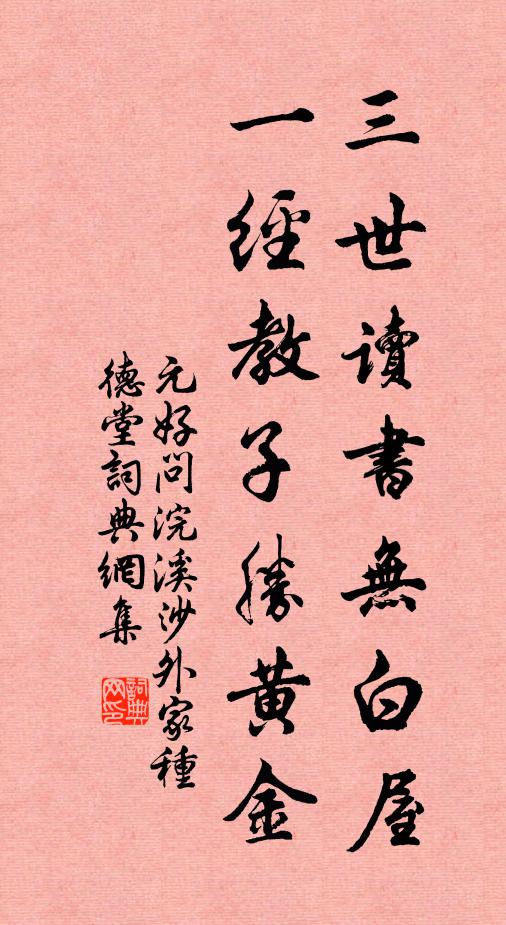 三世讀書無白屋
一經教子勝黃金
元好問浣溪沙外家種
德堂詞典網集
詞典網印